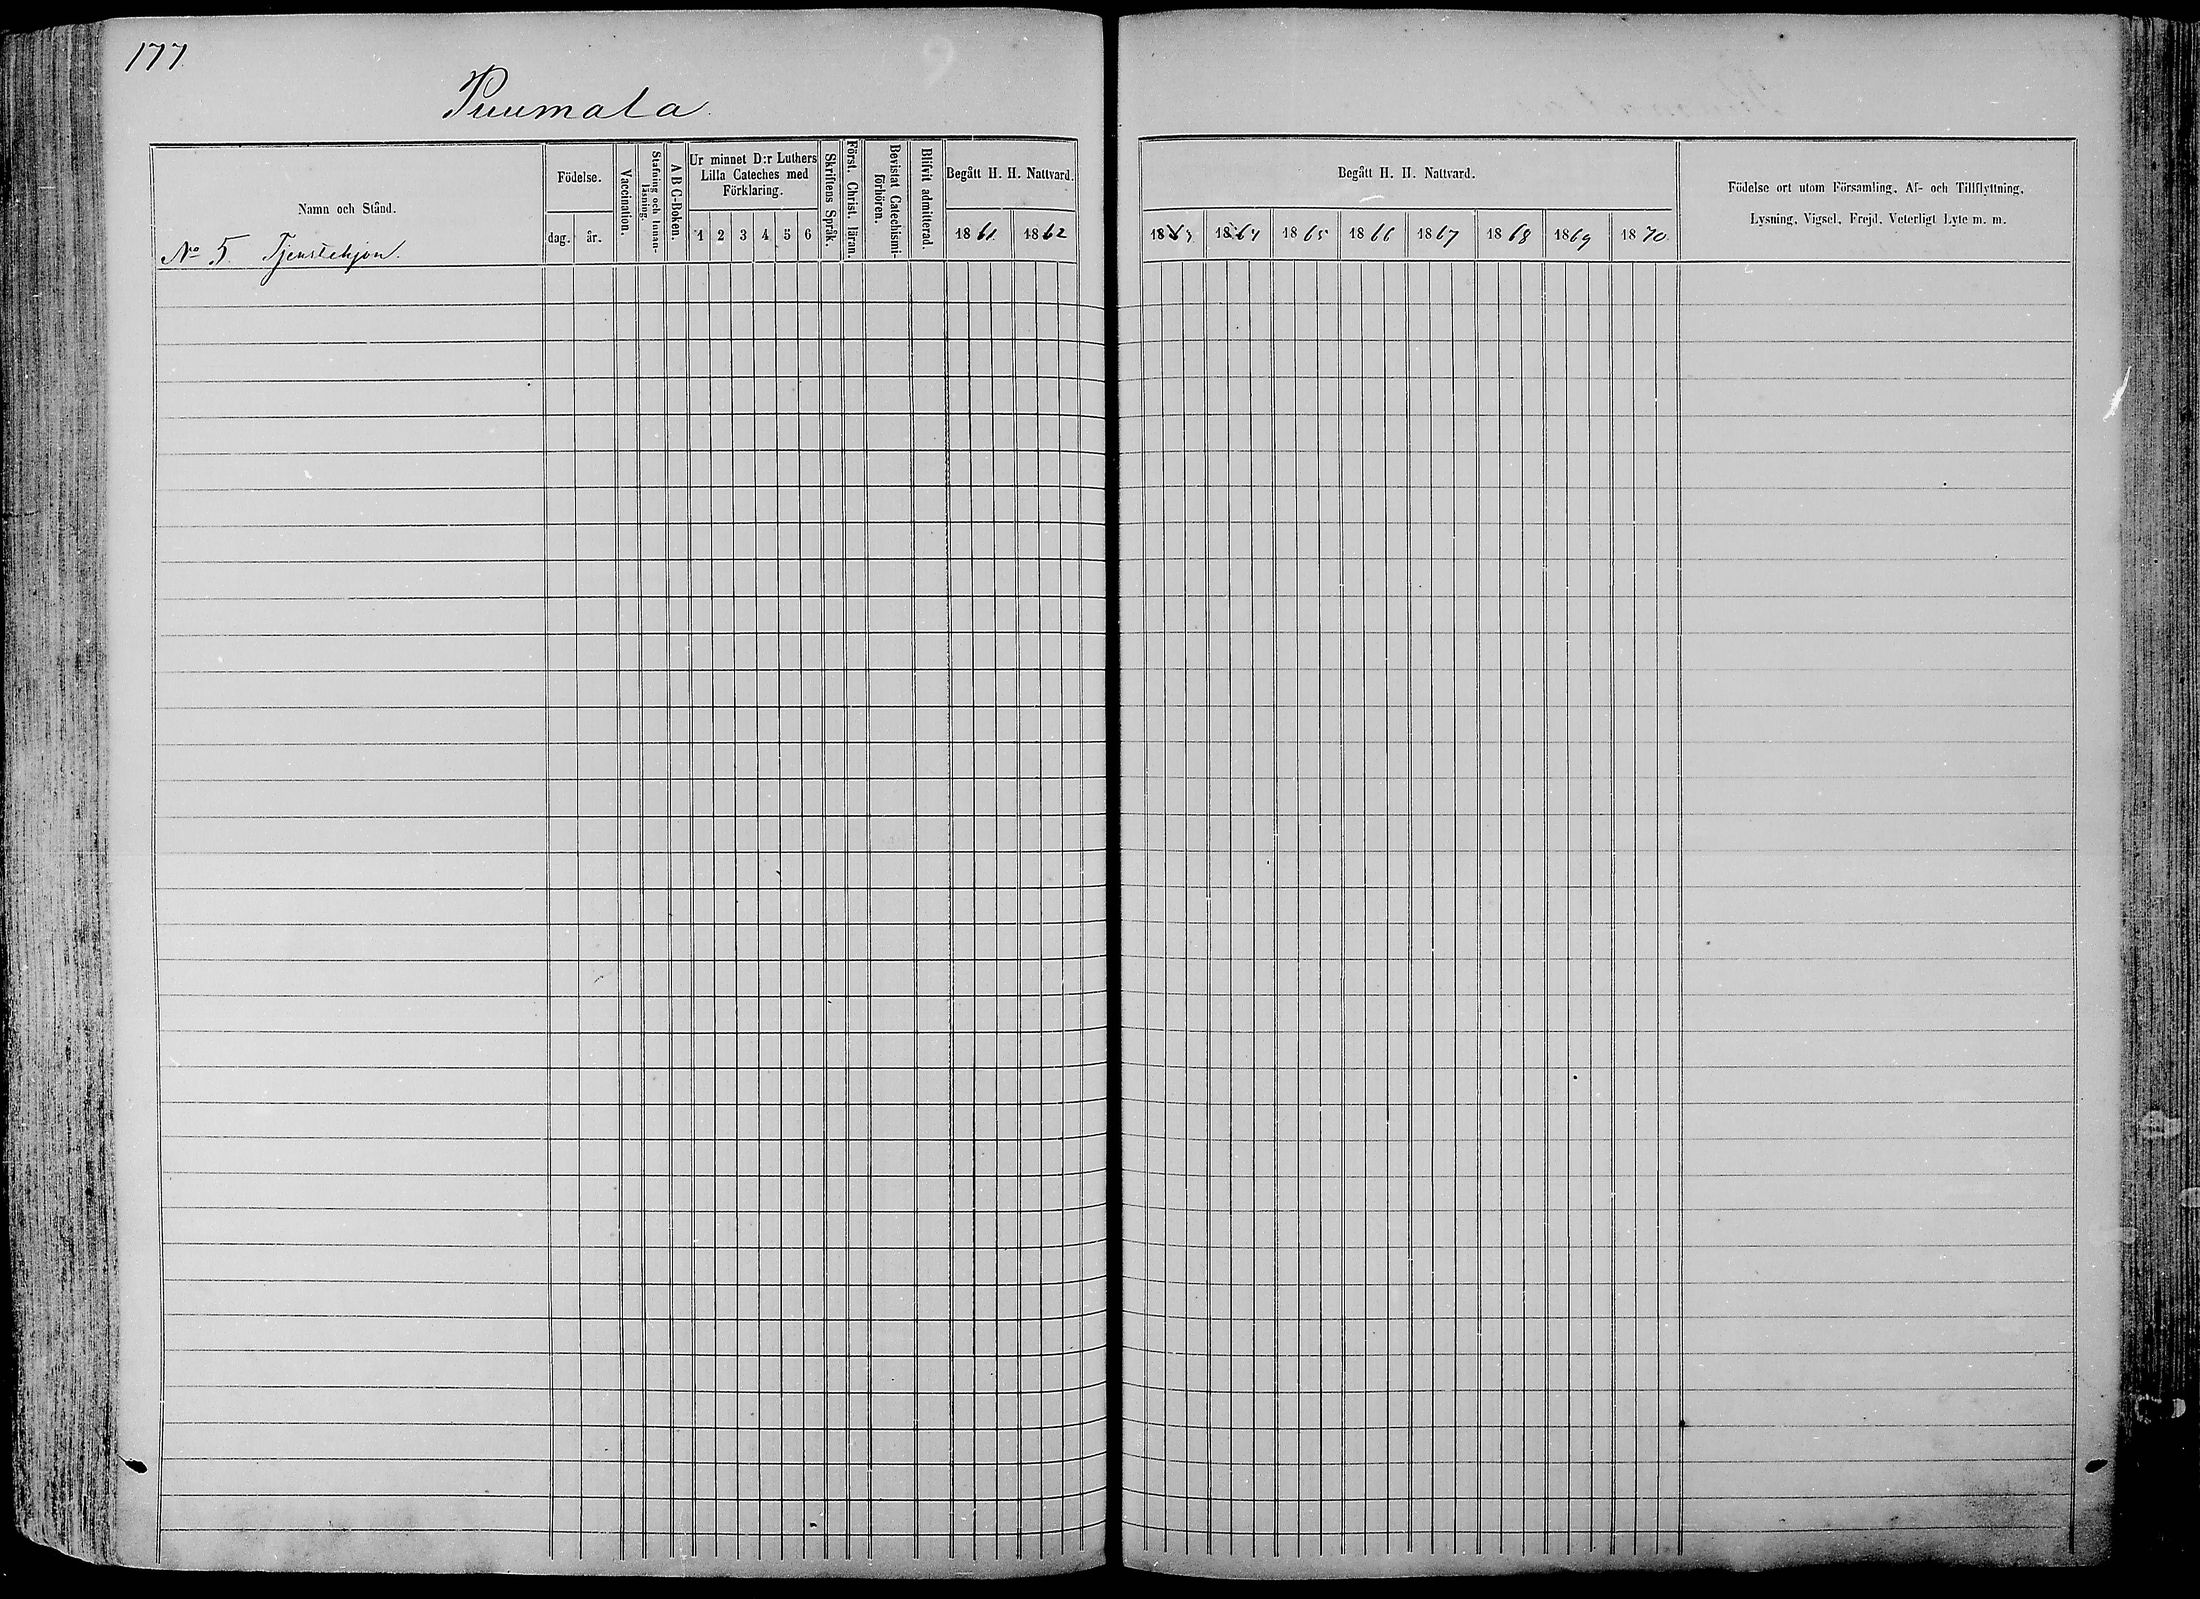 177.
Puumala.
Namn och Stånd.
No 5. Tjenstehjon.
Födelse.
dag. år.
Vaccination.
Stafning och Innan-
läsning.
A B C-Boken.
Ur minnet D:r Luthers
Lilla Cateches med
Förklaring.
1 2 3 4 5 6
Skriftens Språk.
Först. Christ. läran.
Bevistat Catechismi-
förhören.
Blifvit admitterad.
Begått H. H. Nattvard.
1861 1862
Begått H. H. Nattvard.
1863 1864 1865 1866 1867 1868 1869 1870.
Födelse ort utom Församling, Af- och Tillflyttning,
Lysning, Vigsel, Frejd, Veterligt Lyte m. m.